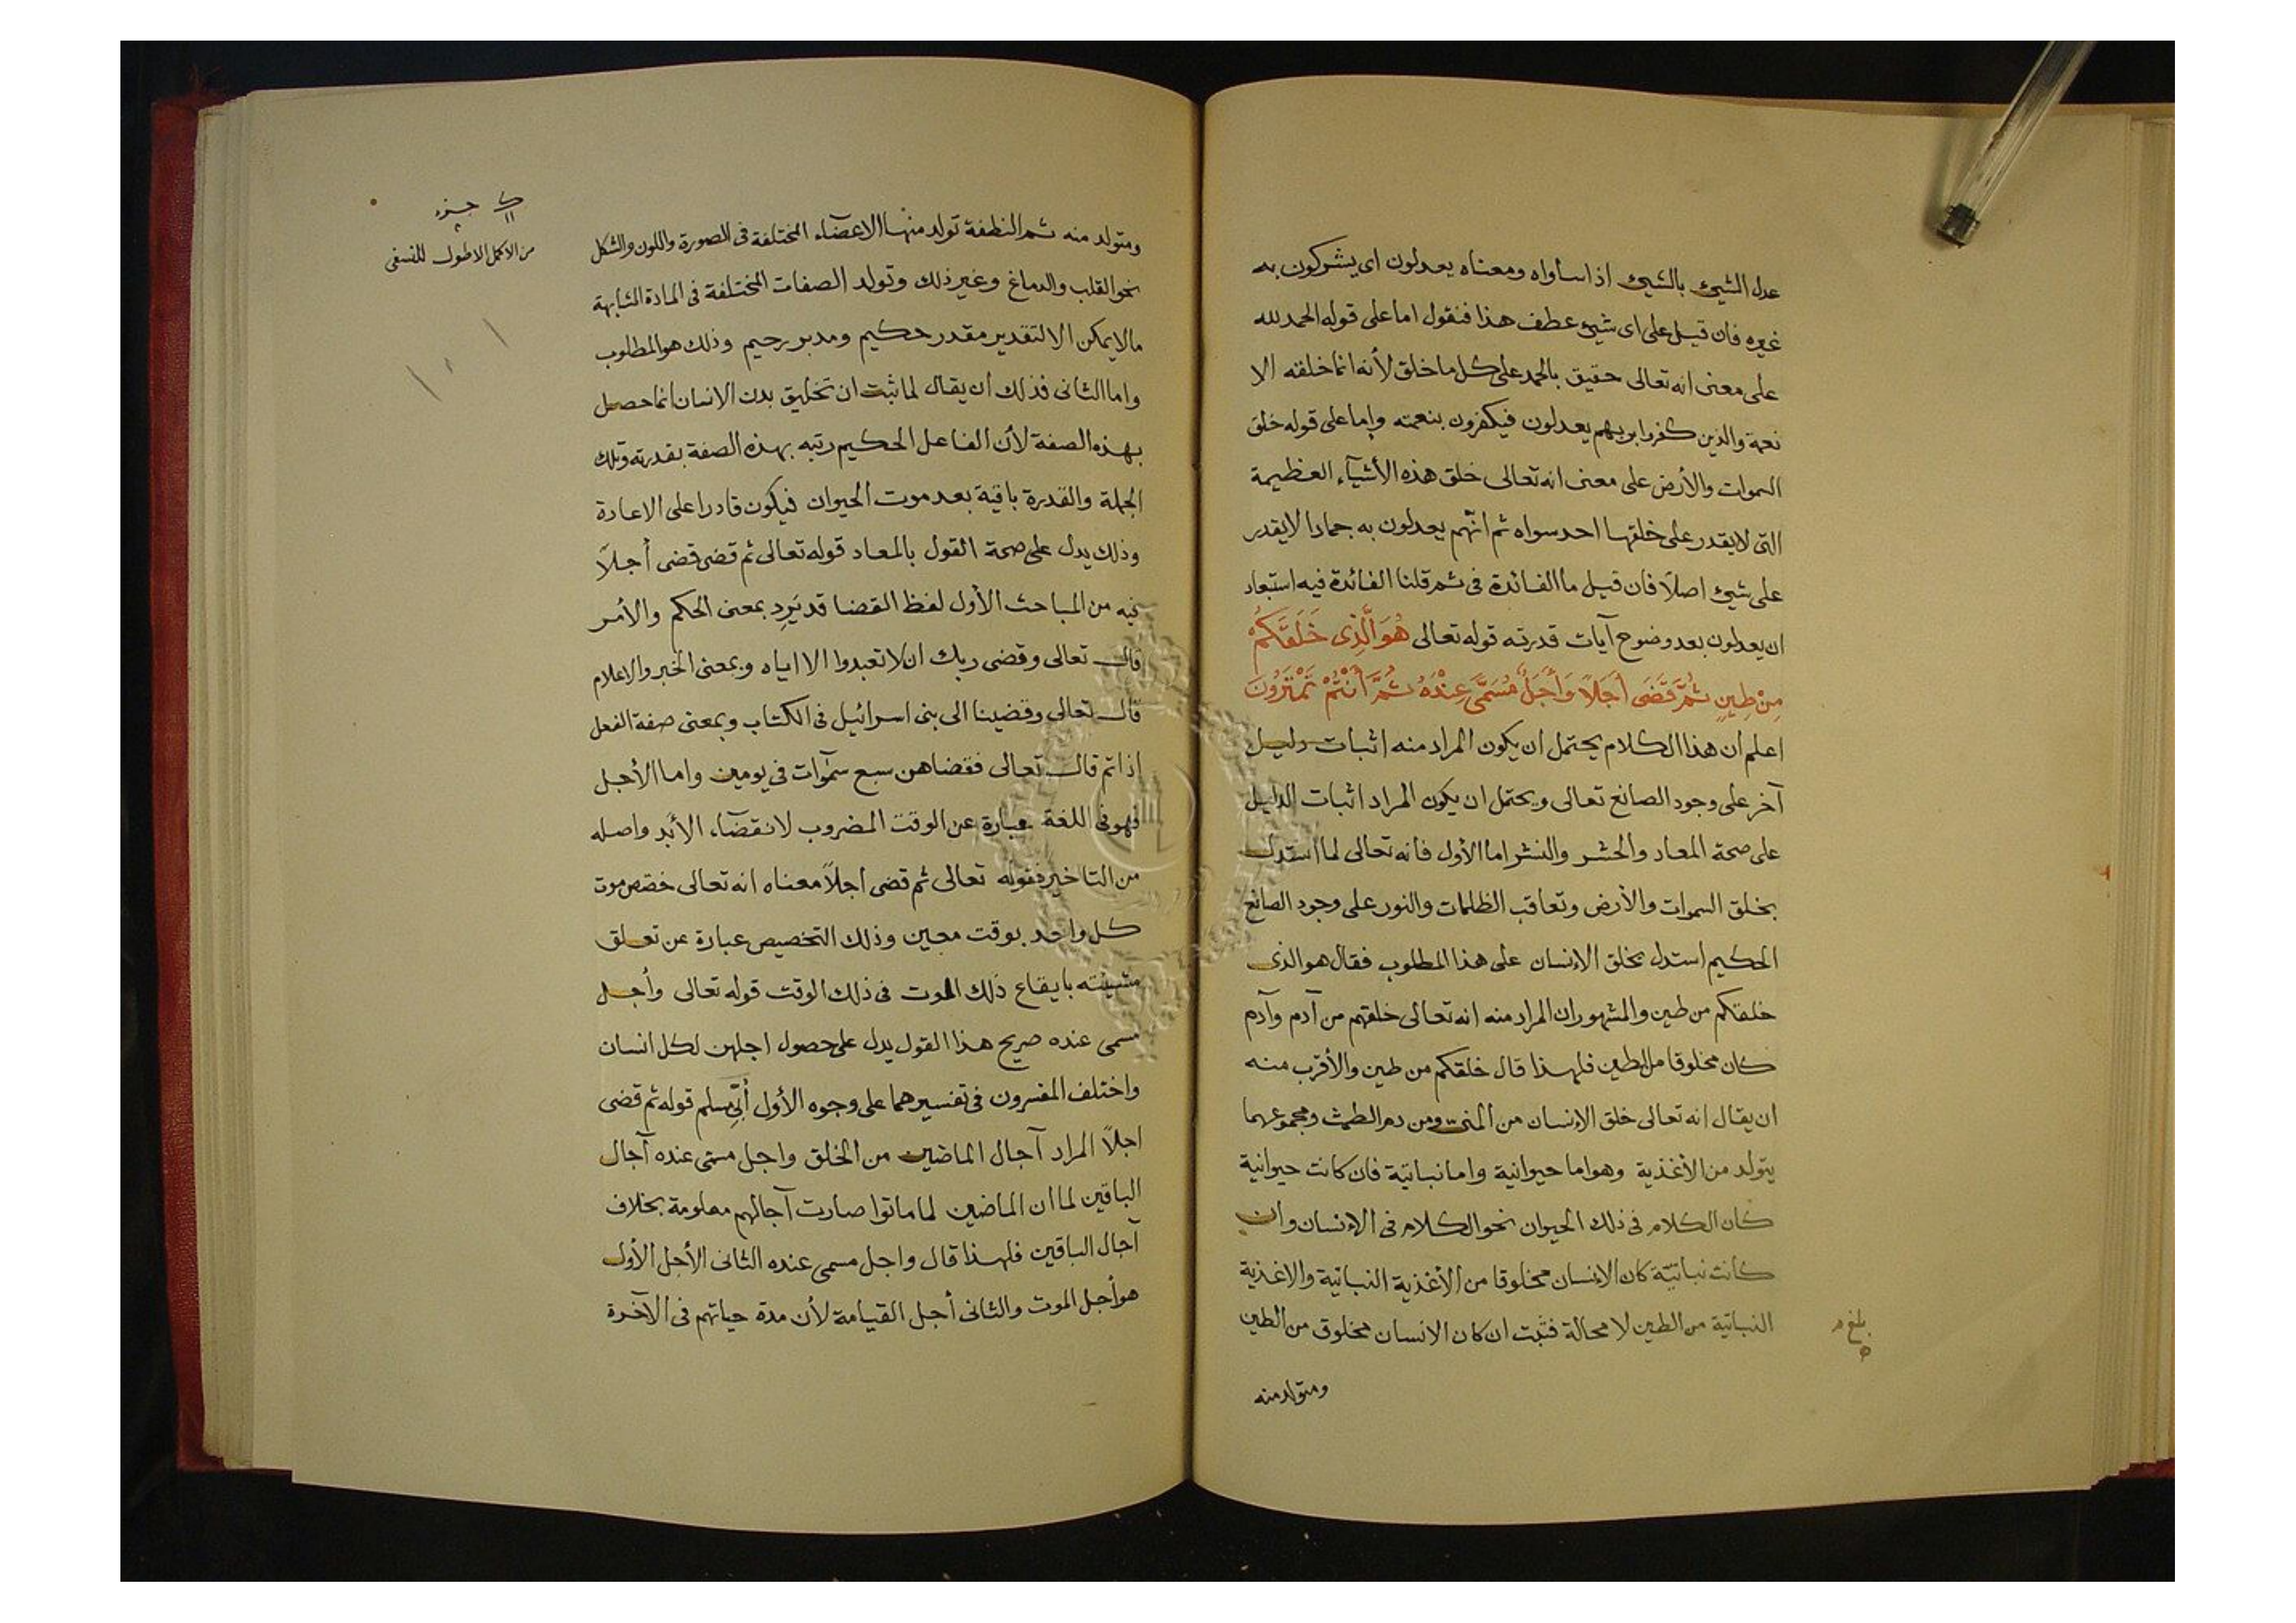 عدل الشيئ بالشيئ اذا ساواه ومعناه يعدلون اى يشركون به
غيره فان قيل على اى شيئ عطف هذا فنقول اما على قوله الحمد لله
على معنى انه تعالى حقيق بالحمد على كل ما خلق لأنه انما خلقه الا
نعمة والذين كفروا بربهم يعدلون فيكفرون بنعمته واما على قوله خلق
السموات والأرض على معنى انه تعالى خلق هذه الأشيآء العظيمة
التى لا يقدر على خلقها احد سواه ثم انهم يعدلون به جمادا لا يقدر
على شيئ اصلا فان قيل ما الفائدة فى ثم قلنا الفائدة فيه استبعاد
ان يعدلون بعد وضوح آيات قدرته قوله تعالى هُوَ الَّذِى خَلَقَكُمْ
مِنْ طِينٍ ثُمَّ قَضَى أَجَلًا وَأَجَلٌ مُسَمًّى عِنْدَهُ ثُمَّ أَنْتُمْ تَمْتَرُونَ
اعلم ان هذا الكلام يحتمل ان يكون المراد منه اثبات دليل
آخر على وجود الصانع تعالى ويحتمل ان يكون المراد اثبات الدليل
على صحة المعاد والحشر والنشر اما الأول فانه تعالى لما استدل
بخلق السموات والأرض وتعاقب الظلمات والنور على وجود الصانع
الحكيم استدل بخلق الإنسان على هذا المطلوب فقال هو الذى
خلقكم من طين والمشهور ان المراد منه انه تعالى خلقهم من آدم وآدم
كان مخلوقا من الطين فلهذا قال خلقكم من طين والأقرب منه
ان يقال انه تعالى خلق الإنسان من المنى ومن دم الطمث ومجموعهما
يتولد من الأغذية وهو اما حيوانية واما نباتية فان كانت حيوانية
كان الكلام فى ذلك الحيوان نحو الكلام فى الإنسان وان
كانت نباتية كان الإنسان مخلوقا من الأغذية النباتية والاغذية
النباتية من الطين لا محالة فثبت ان كان الانسان مخلوق من الطين
بلغ م
ومتولد منه
جزء
من الاكمل الاطول للنسفى
ومتولد منه ثم النطفة تولد منها الاعضآء المختلفة فى الصورة واللون والشكل
نحو القلب والدماغ وغير ذلك وتولد الصفات المختلفة فى المادة المتشابهة
مالا يمكن الا لتقدير مقدر حكيم ومدبر رحيم وذلك هو المطلوب
واما الثانى فذلك أن يقال لما ثبت ان تخليق بدن الانسان انما حصل
بهذه الصفة لأن الفاعل الحكيم رتبه بهذه الصفة بقدرته وتلك
الجملة والقدرة باقية بعد موت الحيوان فيكون قادرا على الاعادة
وذلك يدل على صحة القول بالمعاد قوله تعالى ثم قضى قضى أجلاً
فيه من المباحث الأول لفظ القضا قد يَرِد بمعنى الحكم والأمر
قال تعالى وقضى ربك ان لا تعبدوا الا اياه وبمعنى الخبر والاعلام
قال تعالى وقضينا الى بنى اسرائيل فى الكتاب وبمعنى صفة الفعل
اذا تم قال تعالى فقضاهن سبع سمٓوات فى يومين واما الأجل
فهو فى اللغة عبارة عن الوقت المضروب لانقضآء الأبد واصله
من التاخير فقوله تعالى ثم قضى اجلاً معناه انه تعالى خصص موت
كل واحد بوقت معين وذلك التخصيص عبارة عن تعلق
مشيئته بايقاع ذلك الموت فى ذلك الوقت قوله تعالى وأجل
مسمى عنده صريح هذا القول يدل على حصول اجلين لكل انسان
واختلف المفسرون فى تفسيرهما على وجوه الأول أبى مسلم قوله ثم قضى
اجلاً المراد آجال الماضين من الخلق واجل مسمى عنده آجال
الباقين لما ان الماضين لما ماتوا صارت آجالهم معلومة بخلاف
آجال الباقين فلهذا قال واجل مسمى عنده الثانى الأجل الأول
هو أجل الموت والثانى أجل القيامة لأن مدة حياتهم فى الآخرة